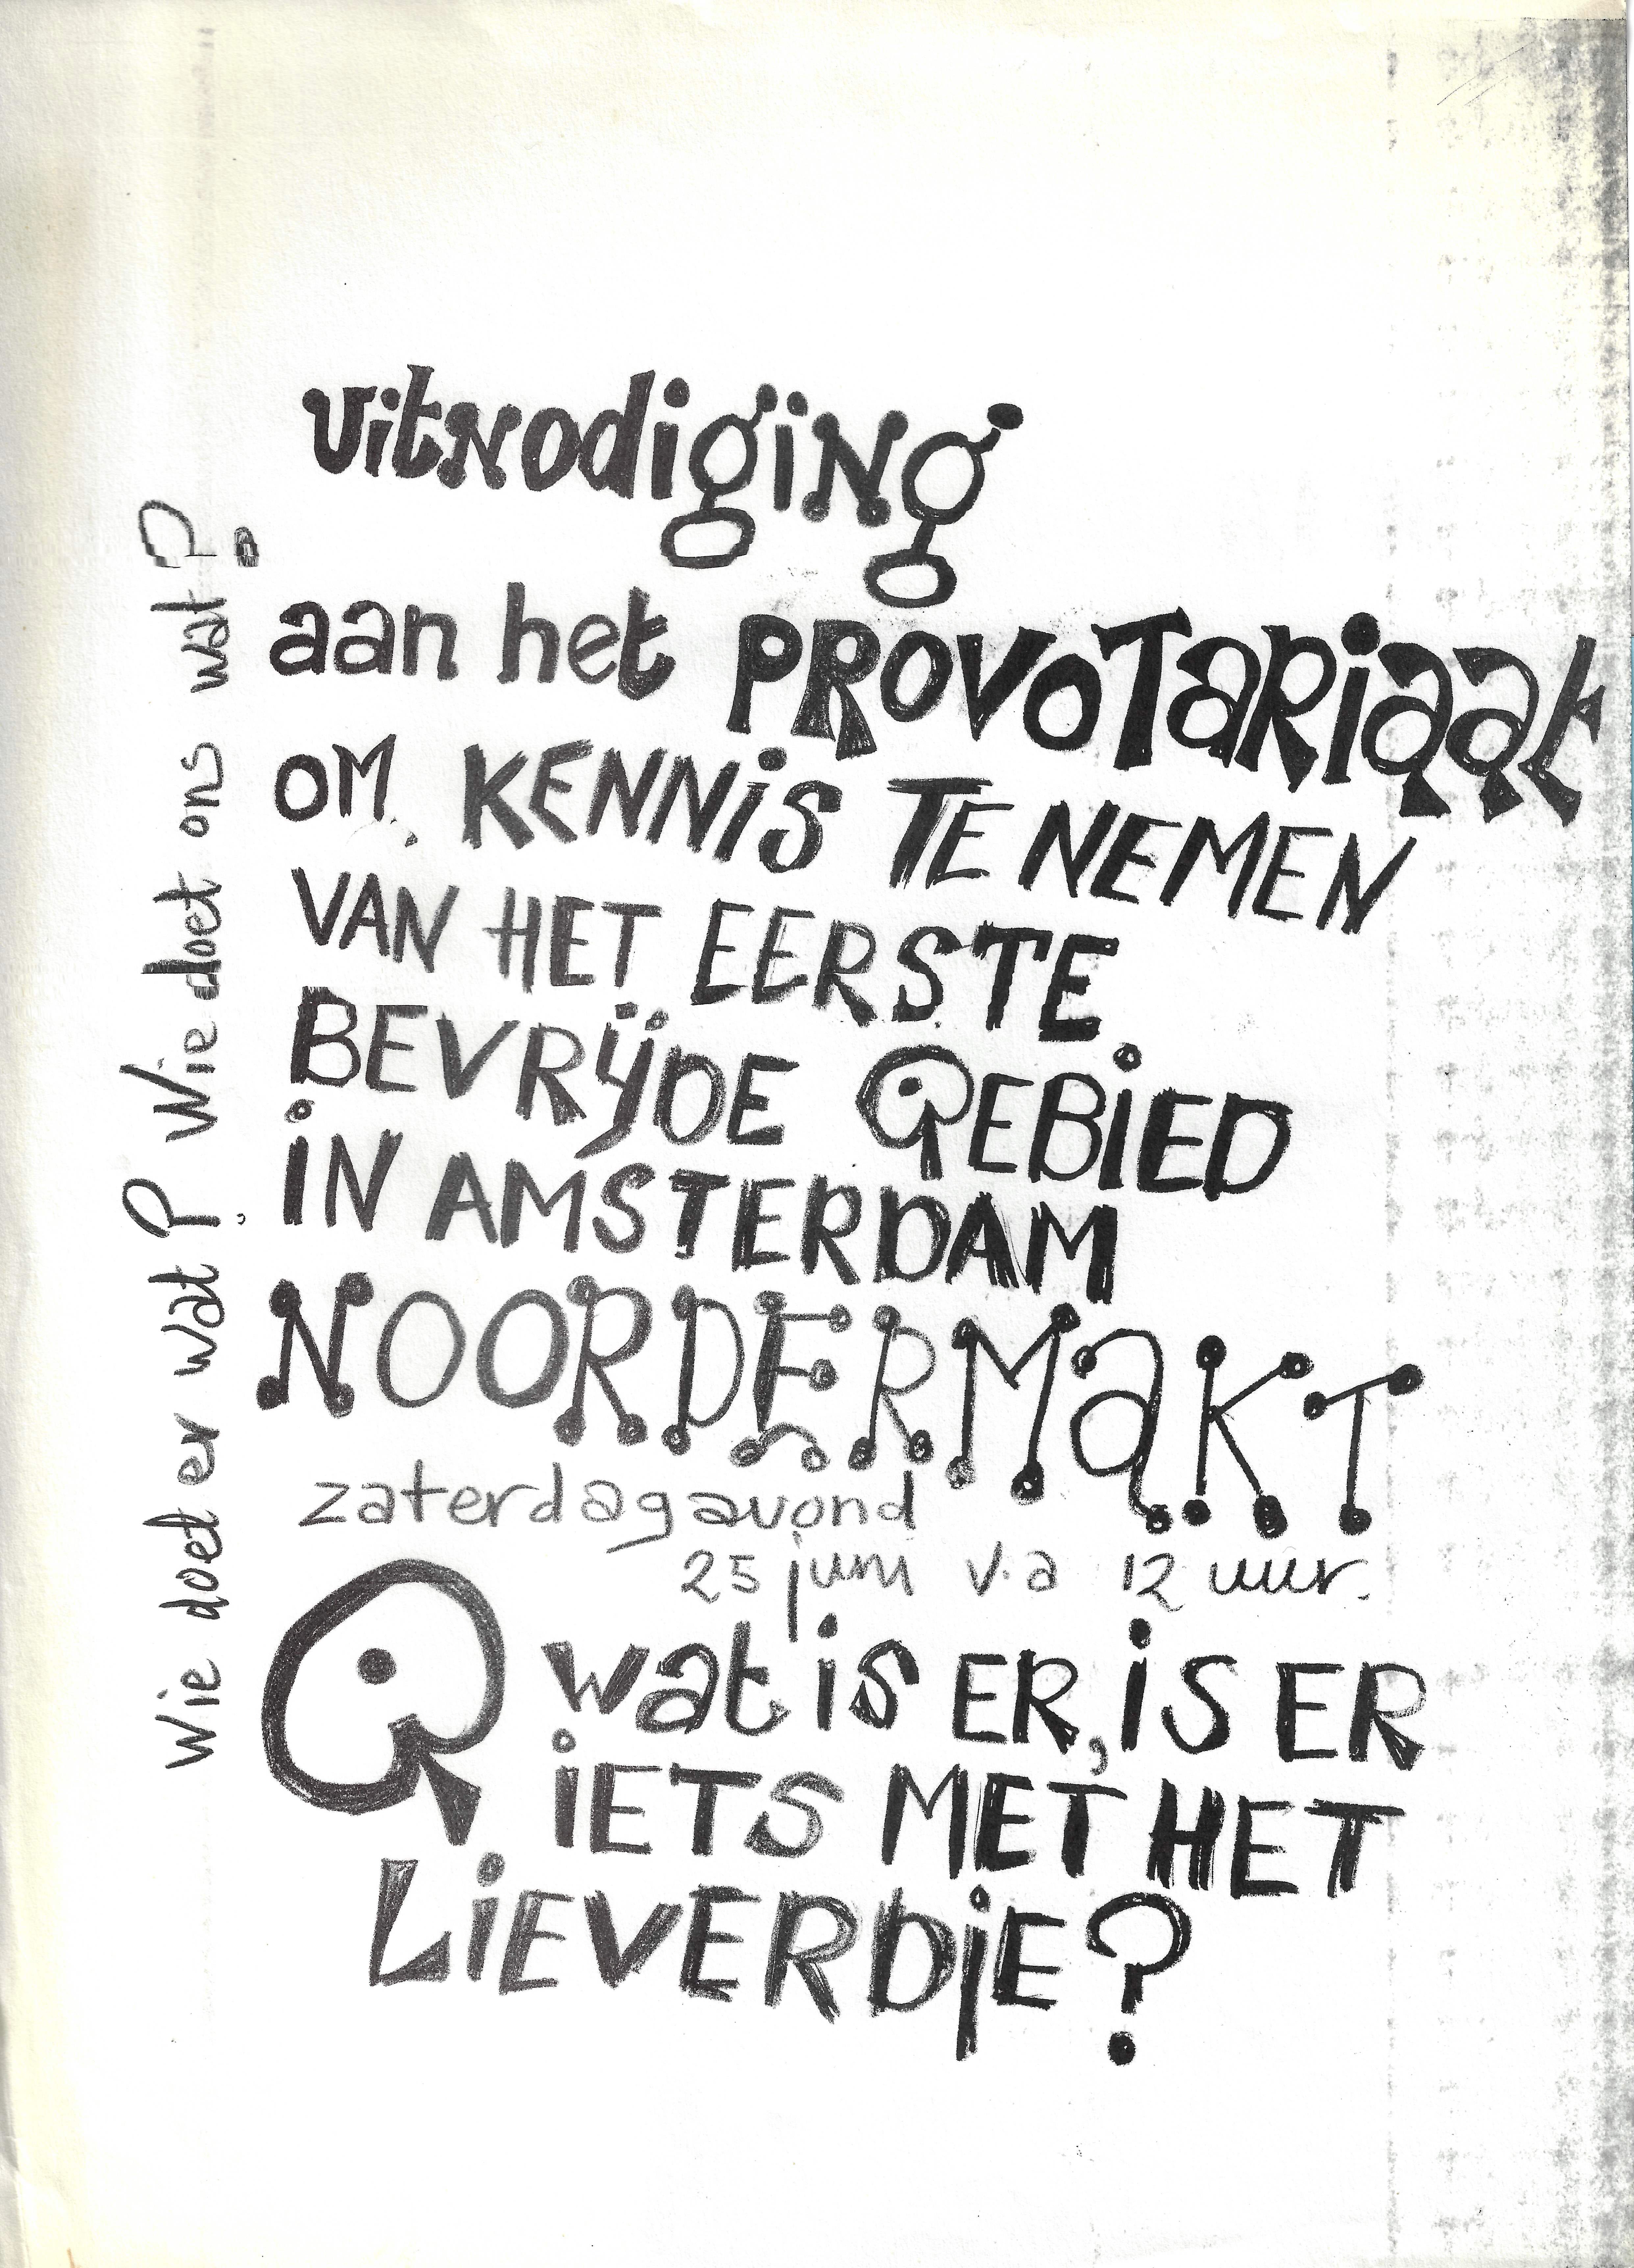 uitnodiging
aan het PROVOTARIAAT
OM KENNIS TE NEMEN
VAN HET EERSTE
BEVRIJDE GEBIED
IN AMSTERDAM
NOORDERMAKT
zaterdagavond
25 juni v.a 12 uur.
wat is ER, is ER
IETS MET HET
LIEVERDJE?
Wie doet er wat? Wie doet ons wat?